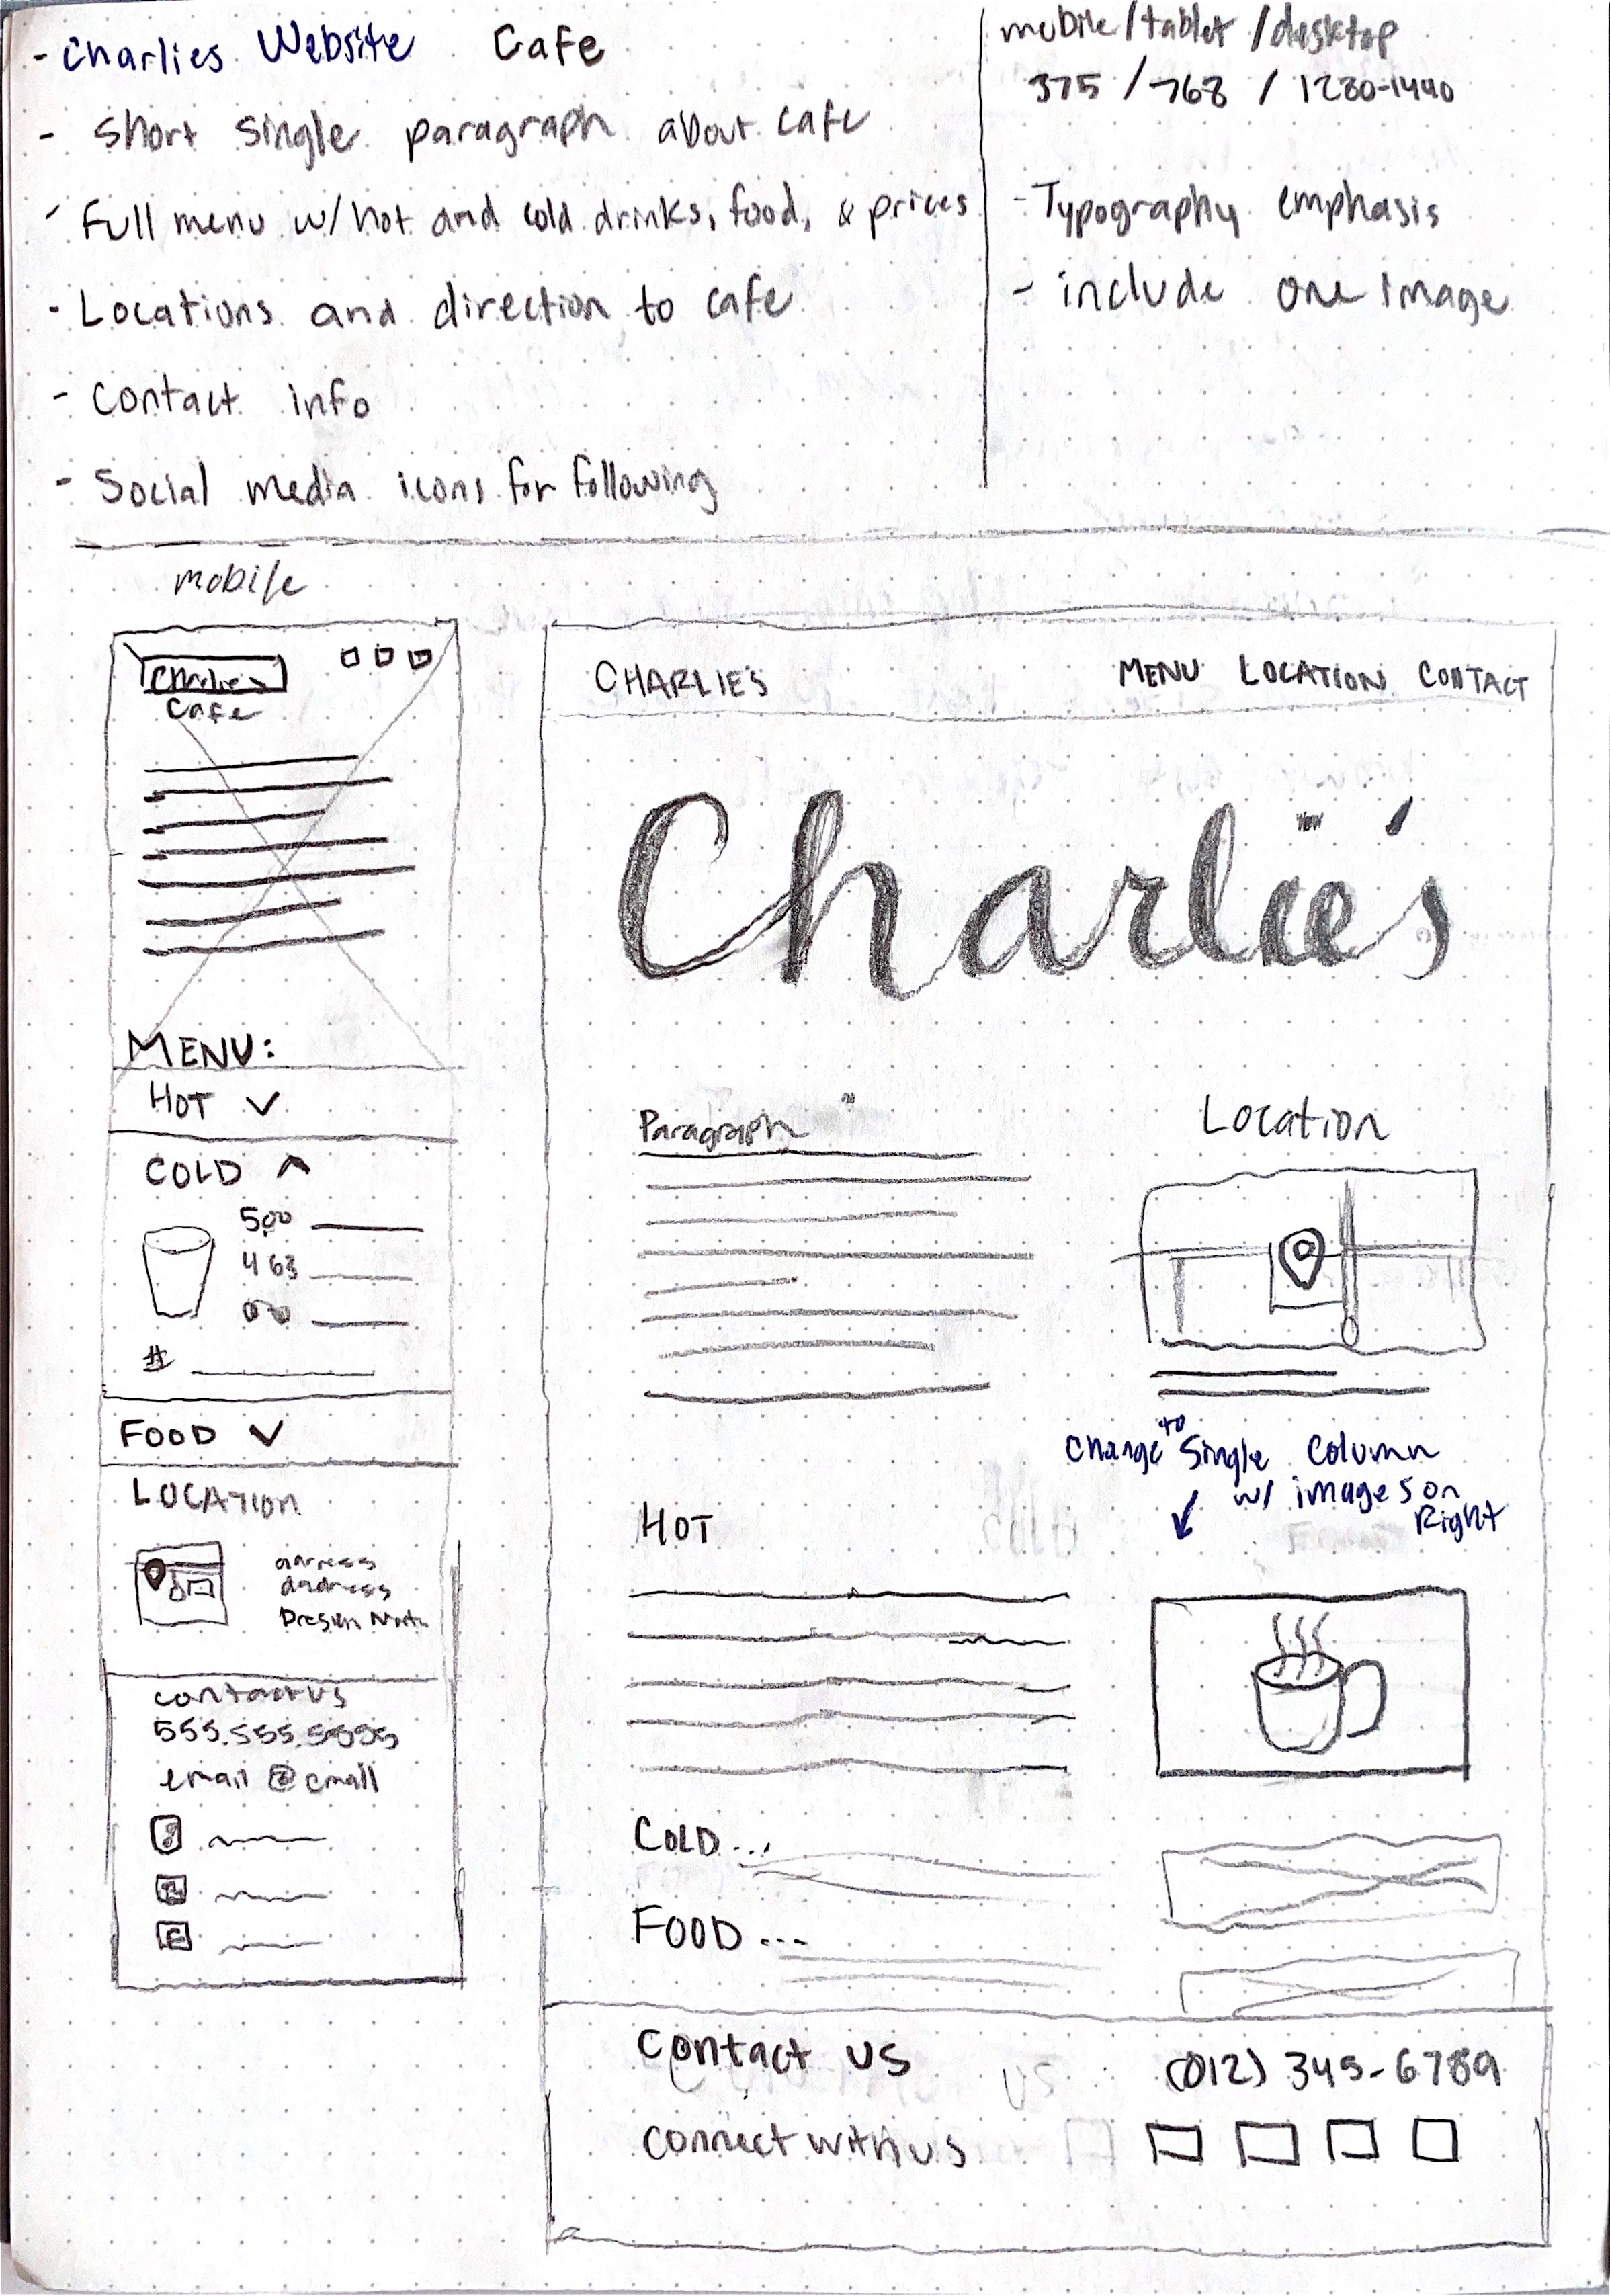 - Charlies Website Cafe
- Short single paragraph about cafe
- Full menu w/hot and cold drinks, food, & prices
- Locations and direction to cafe
- Contact info
- Social media icons for following
mobile/tablet/desktop
375 / 768 / 1280-1440
- Typography emphasis
- include one image
mobile
Charlies
Cafe
MENU:
HOT
COLD
5.00
4 63
#
FOOD
LOCATION
contact us
555.555.5555
email @
CHARLIES
MENU LOCATION CONTACT
Charlie's
Paragraph
Location
Change to single column
w/ images on
Right
HOT
COLD...
FOOD ...
Contact us
(012) 345-6789
connect with us